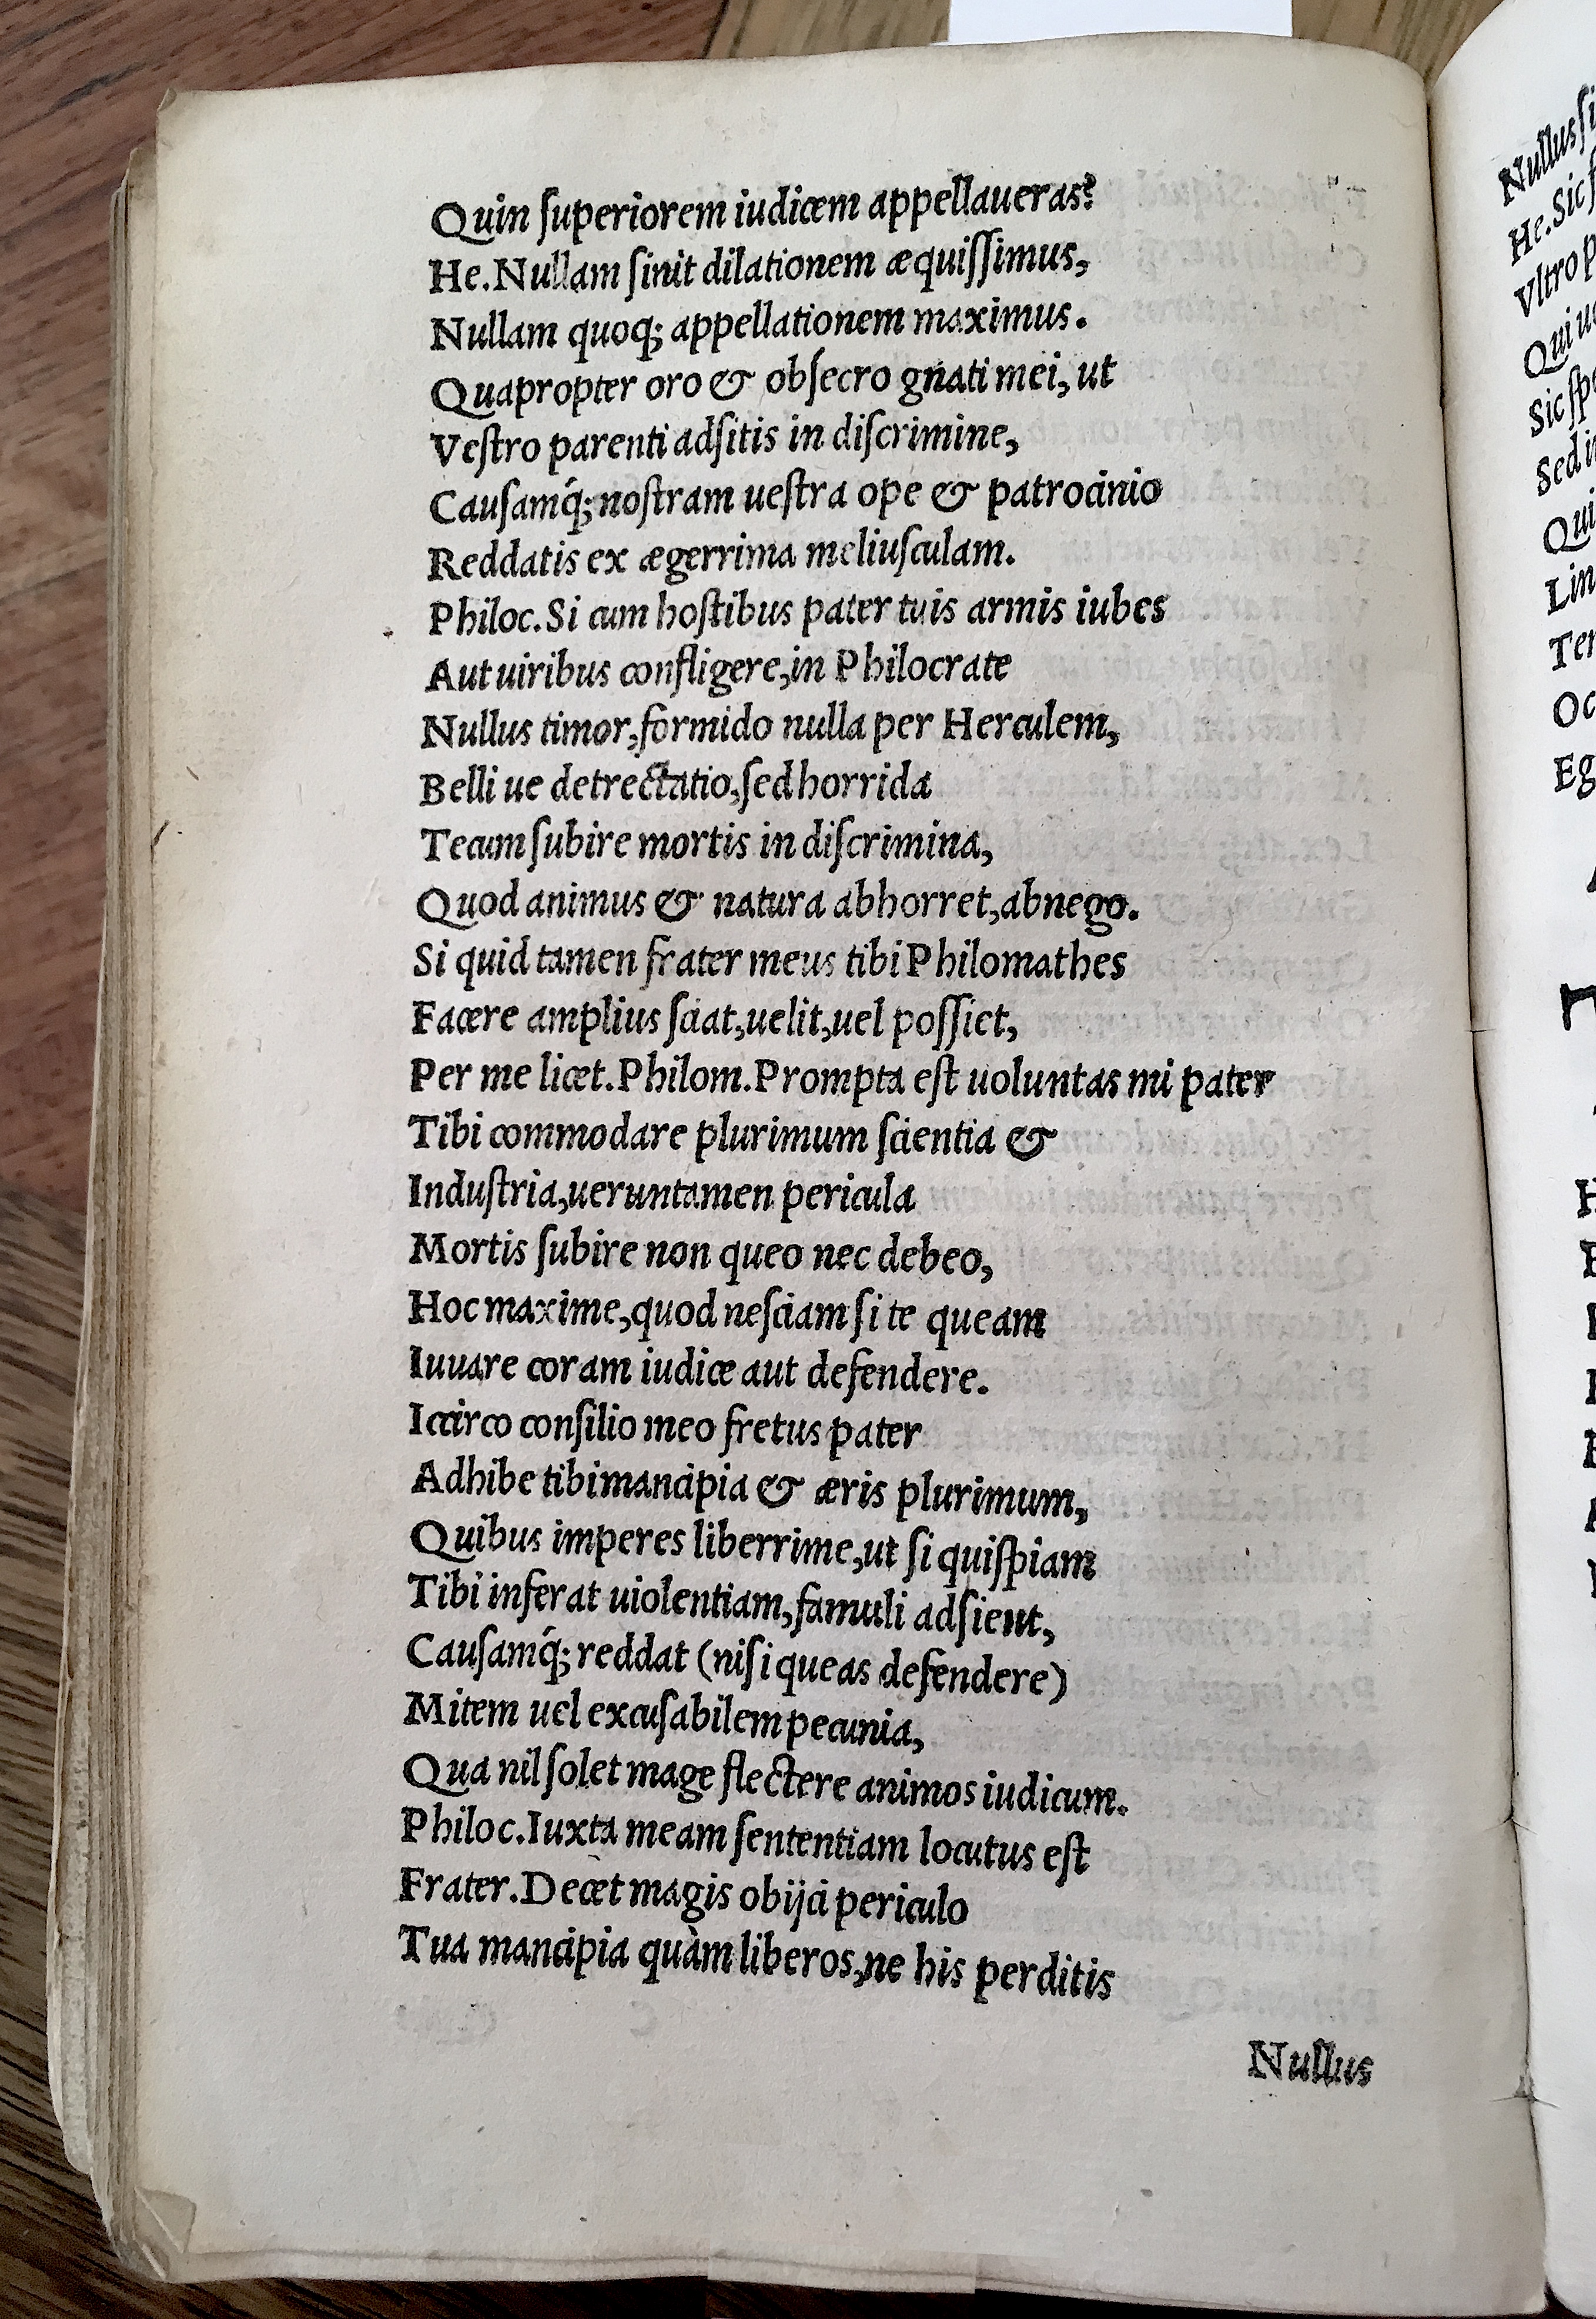 Quin ſuperiorem iudicem appellaueras?
He.Nullam ſinit dilationem æquiſſimus,
Nullam quoq; appellationem maximus.
Quapropter oro & obſecro gnati mei, ut
Veſtro parenti adſitis in diſcrimine,
Cauſamq́; noſtram ueſtra ope & patrocinio
Reddatis ex ægerrima meliuſculam.
Philoc.Si cum hoſtibus pater tuis armis iubes
Aut uiribus confligere,in Philocrate
Nullus timor,formido nulla per Herculem,
Belli ue detrectatio,ſed horrida
Tecum ſubire mortis in diſcrimina,
Quod animus & natura abhorret,abnego.
Si quid tamen frater meus tibi Philomathes
Facere amplius ſciat,uelit,uel poſſiet,
Per me licet.Philom.Prompta eſt uoluntas mi pater
Tibi commodare plurimum ſcientia &
Induſtria,ueruntamen pericula
Mortis ſubire non queo nec debeo,
Hoc maxime,quod neſciam ſi te queam
Iuuare coram iudice aut defendere.
Iccirco conſilio meo fretus pater
Adhibe tibi mancipia & æris plurimum,
Quibus imperes liberrime,ut ſi quiſpiam
Tibi inferat uiolentiam,famuli adſient,
Cauſamq́; reddat (niſi queas defendere)
Mitem uel excuſabilem pecunia,
Qua nil ſolet mage flectere animos iudicum.
Philoc.Iuxta meam ſententiam locutus eſt
Frater.Decet magis obijci periculo
Tua mancipia quàm liberos,ne his perditis
Nullus
Nullus ſi
He.Sic
Vltro
Qui
Sic
Sed